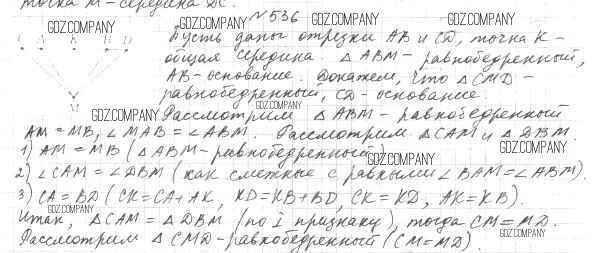 точка М - середина DC.
N 536
GDZ.COMPANY
GDZ.COMPANY
GDZ.COMPANY
Пусть даны отрезки AB и CD, точка K-
C A B D
общая середина. △ABM - равнобедренный,
AB-основание. Докажем, что △CMD-
равнобедренный, CD-основание.
M
GDZ.COMPANY
GDZ.COMPANY
Рассмотрим △ABM - равнобедренный
AM=MB, ∠MAB=∠ABM. Рассмотрим △CAM и △DBM.
GDZ.COMPANY
1) AM=MB (△ABM-равнобедренный)
GDZ.COMPANY
2) ∠CAM=∠DBM (как смежные с равными ∠BAM=∠ABM).
3) CA=BD (CK=CA+AK, KD=KB+BD, CK=KD, AK=KB).
GDZ.COMPANY
Итак, △CAM=△DBM (по I признаку), тогда CM=MD.
Рассмотрим △CMD-равнобедренный (CM=MD).
GDZ.COMPANY